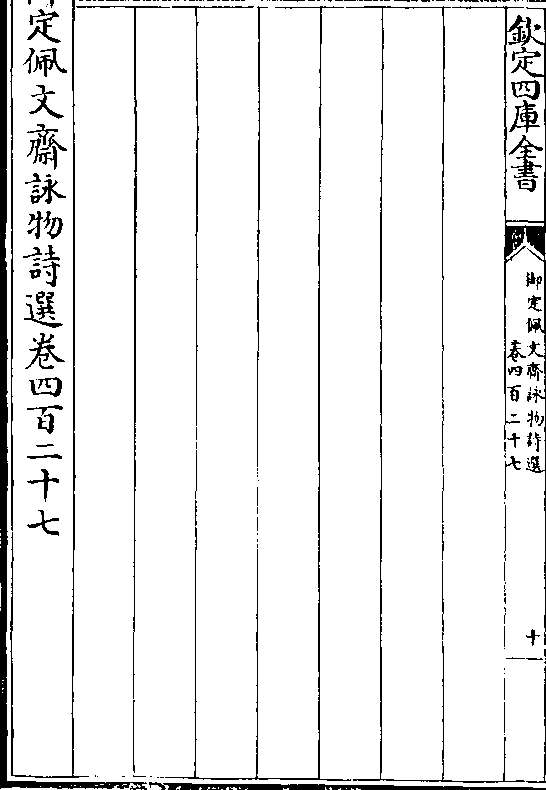 欽定四庫全書
御定佩文齋詠物詩選
卷四百二十七
十
御定佩文齋詠物詩選卷四百二十七